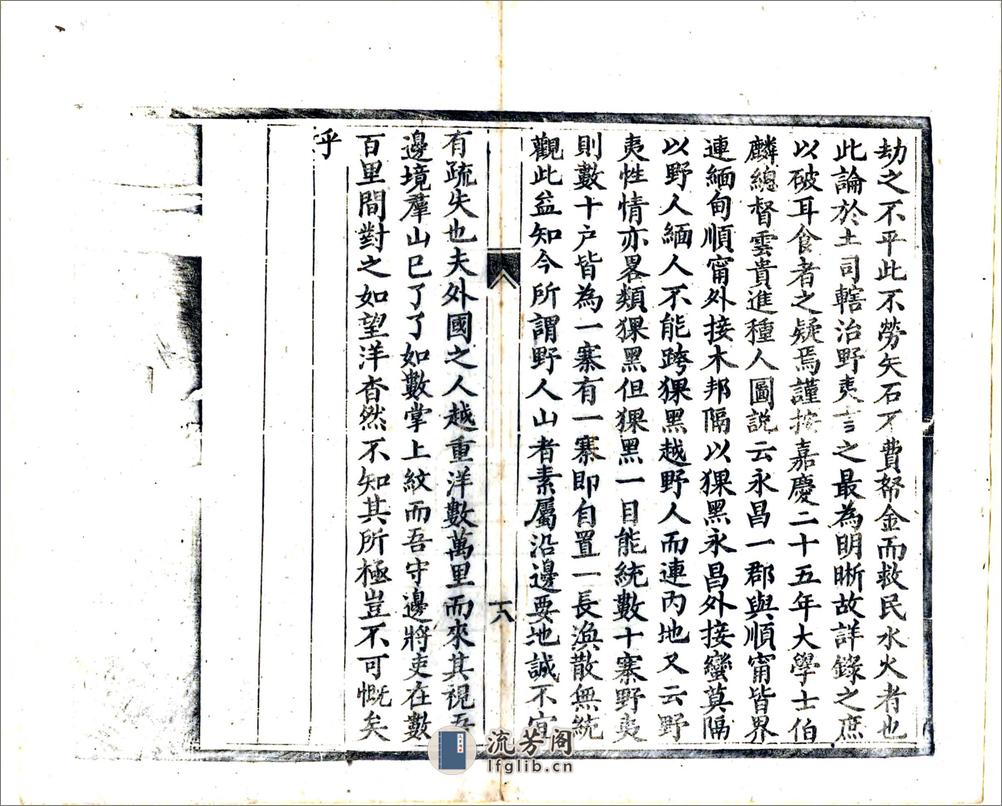 劫之不平此不勞矢石不費帑金而救民水火者也
此論於土司轄治野夷言之最為明晰故詳錄之庶
以破耳食者之疑焉謹按嘉慶二十五年大學士伯
麟總督雲貴進種人圖說云永昌一郡與順甯皆界
連緬甸順甯外接木邦隔以猓黑永昌外接蠻莫隔
以野人緬人不能跨猓黑越野人而連內地又云野
夷性情亦畧類猓黑但猓黑一目能統數十寨野夷
則數十戶皆為一寨有一寨即自置一長渙散無統
觀此益知今所謂野人山者素屬沿邊要地誠不宜
十八
有疏失也夫外國之人越重洋數萬里而來其視吾
邊境羣山已了了如數掌上紋而吾守邊將吏在數
百里間對之如望洋杳然不知其所極豈不可慨矣
乎
流芳阁
lfglib.cn